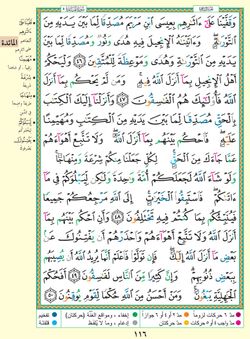 المائدة
وَقَفَّيْنَا عَلَىٰٓ ءَاثَٰرِهِم بِعِيسَى ٱبْنِ مَرْيَمَ مُصَدِّقًا لِّمَا بَيْنَ يَدَيْهِ مِنَ
ٱلتَّوْرَىٰةِ وَءَاتَيْنَٰهُ ٱلْإِنجِيلَ فِيهِ هُدًى وَنُورٌ وَمُصَدِّقًا لِّمَا بَيْنَ يَدَيْهِ
مِنَ ٱلتَّوْرَىٰةِ وَهُدًى وَمَوْعِظَةً لِّلْمُتَّقِينَ ٤٦ وَلْيَحْكُمْ
أَهْلُ ٱلْإِنجِيلِ بِمَآ أَنزَلَ ٱللَّهُ فِيهِ وَمَن لَّمْ يَحْكُم بِمَآ أَنزَلَ
ٱللَّهُ فَأُو۟لَٰٓئِكَ هُمُ ٱلْفَٰسِقُونَ ٤٧ وَأَنزَلْنَآ إِلَيْكَ ٱلْكِتَٰبَ
بِٱلْحَقِّ مُصَدِّقًا لِّمَا بَيْنَ يَدَيْهِ مِنَ ٱلْكِتَٰبِ وَمُهَيْمِنًا
عَلَيْهِ فَٱحْكُم بَيْنَهُم بِمَآ أَنزَلَ ٱللَّهُ وَلَا تَتَّبِعْ أَهْوَآءَهُمْ
عَمَّا جَآءَكَ مِنَ ٱلْحَقِّ لِكُلٍّ جَعَلْنَا مِنكُمْ شِرْعَةً وَمِنْهَاجًا
وَلَوْ شَآءَ ٱللَّهُ لَجَعَلَكُمْ أُمَّةً وَٰحِدَةً وَلَٰكِن لِّيَبْلُوَكُمْ فِى مَآ
ءَاتَىٰكُمْ فَٱسْتَبِقُوا۟ ٱلْخَيْرَٰتِ إِلَى ٱللَّهِ مَرْجِعُكُمْ جَمِيعًا
فَيُنَبِّئُكُم بِمَا كُنتُمْ فِيهِ تَخْتَلِفُونَ ٤٨ وَأَنِ ٱحْكُم بَيْنَهُم بِمَآ
أَنزَلَ ٱللَّهُ وَلَا تَتَّبِعْ أَهْوَآءَهُمْ وَٱحْذَرْهُمْ أَن يَفْتِنُوكَ عَنۢ
بَعْضِ مَآ أَنزَلَ ٱللَّهُ إِلَيْكَ فَإِن تَوَلَّوْا۟ فَٱعْلَمْ أَنَّمَا يُرِيدُ ٱللَّهُ أَن يُصِيبَهُم
بِبَعْضِ ذُنُوبِهِمْ وَإِنَّ كَثِيرًا مِّنَ ٱلنَّاسِ لَفَٰسِقُونَ ٤٩ أَفَحُكْمَ
ٱلْجَٰهِلِيَّةِ يَبْغُونَ وَمَنْ أَحْسَنُ مِنَ ٱللَّهِ حُكْمًا لِّقَوْمٍ يُوقِنُونَ ٥٠
١١٦